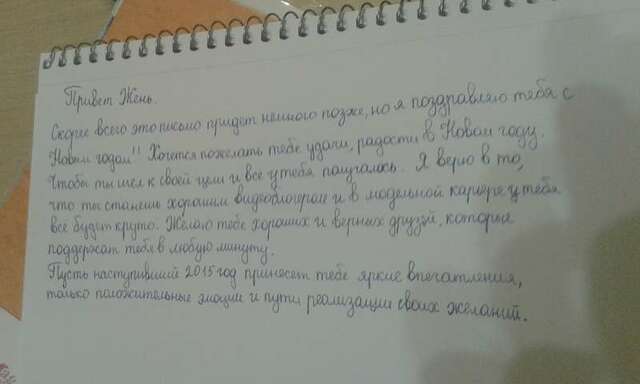 Привет Жень.
Скорие всего это письмо придет немного позже, но я поздравляю тебя с
Новым годом!! Хочется пожелать тебе удачи, радости в Новом году.
Чтобы ты шел к своей цели и все у тебя получалось. Я верю в то,
что ты станешь хорошим видеоблогером и в модельной карьере у тебя
всё будет круто. Желаю тебе хороших и верных друзей, которые
поддержат тебя в любую минуту.
Пусть наступивший 2015 год принесет тебе яркие впечатления,
только положительные эмоции и пути реализации своих желаний.